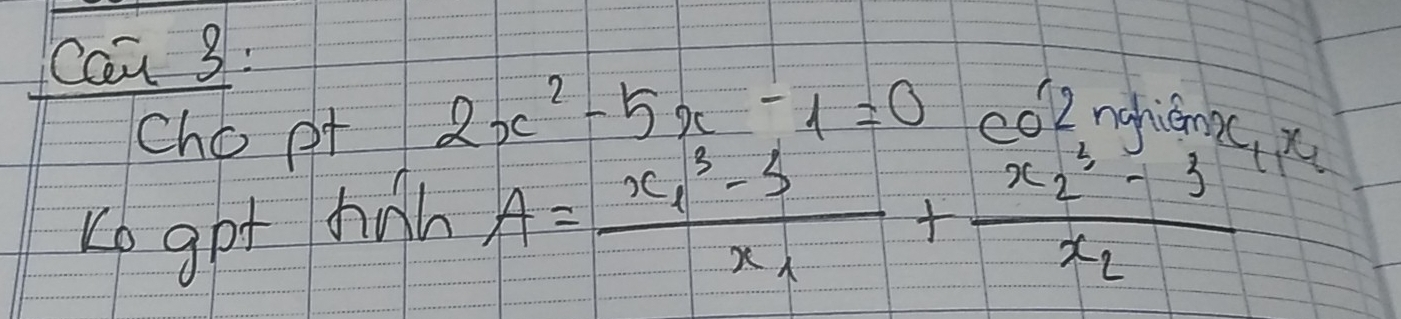 Câu 3:
Cho pt 2x² - 5x - 1 = 0 có 2 nghiệm x₁, x₂
Ko gpt tính A = (x₁³ - 3)/x₁ + (x₂³ - 3)/x₂